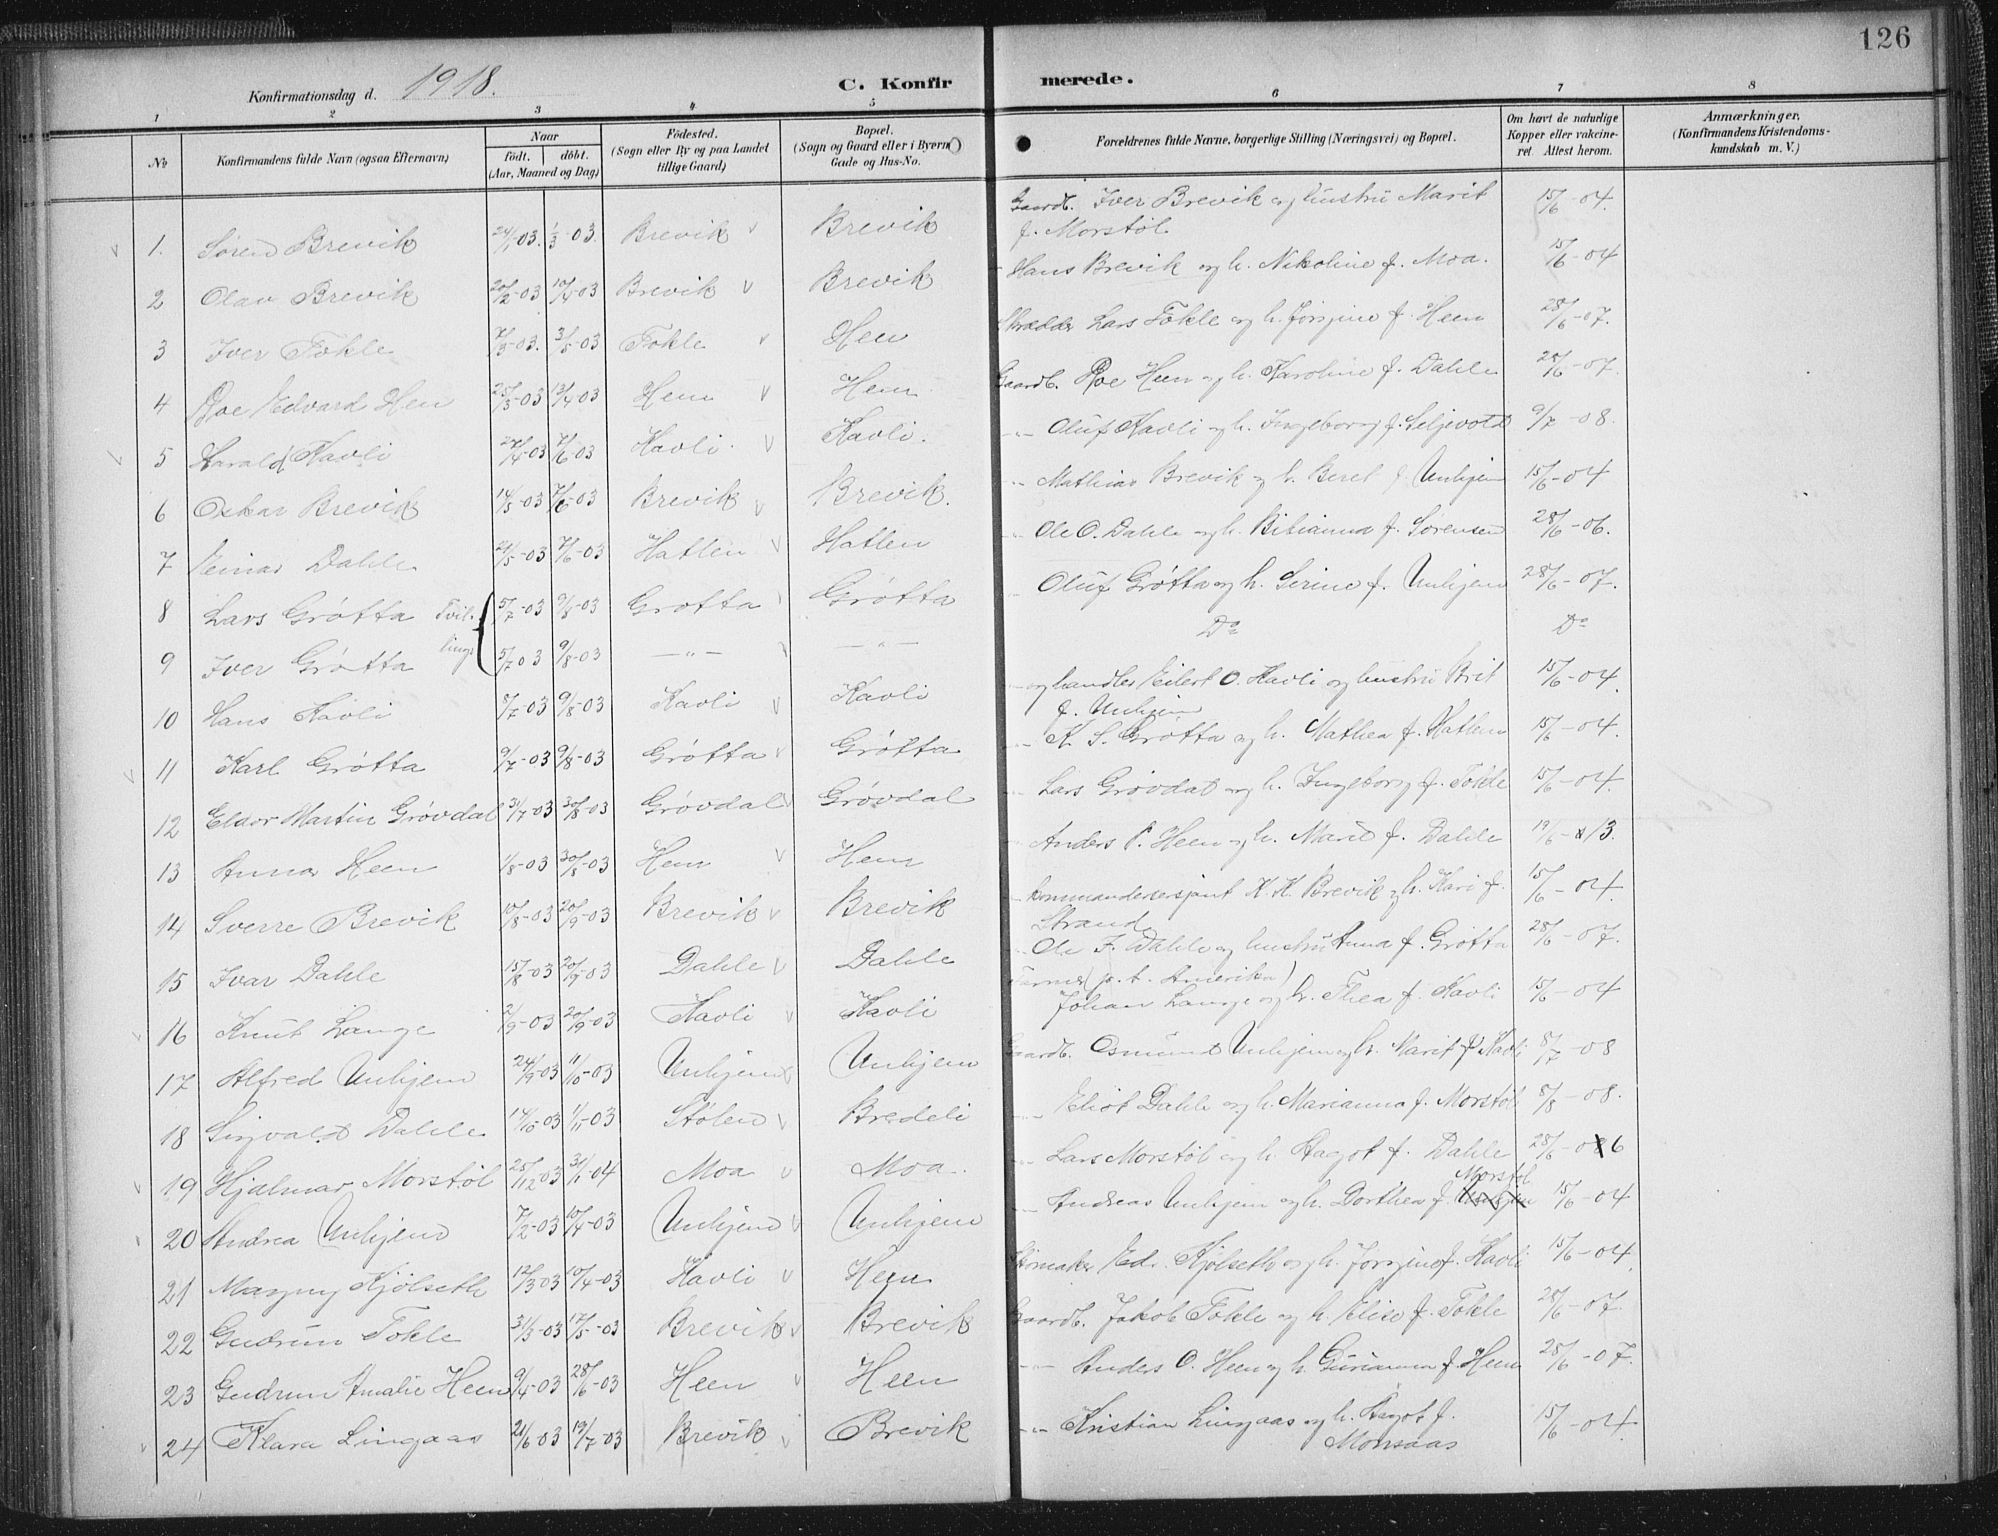 126
Konfirmationsdag d. 1918.
C. Konfirmerede.
1 2 3 4 5 6 7 8
No
Konfirmandens fulde Navn (ogsaa Efternavn)
Naar
født. døbt.
(Aar, Maaned og Dag)
Fødested.
(Sogn eller By og paa Landet
tillige Gaard)
Bopæl.
(Sogn og Gaard eller i Byerne
Gade og Hus-No.
Forældrenes fulde Navne, borgerlige Stilling (Næringsvei) og Bopæl.
Om havt de naturlige
Kopper eller vakcine-
ret. Attest herom.
Anmærkninger,
(Konfirmandens Kristendoms-
kundskab m. V.)
1. Søren Brevik 24/1-03. 1/3-03. Brevik Brevik Gaardb. Iver Brevik og hustru Marit f. Morstøl 15/6-04.
2 Olav Brevik 20/2-03 10/4-03 Brevik Brevik Hans Brevik og h. Nikoline f. Moa. 15/6-04
3 Iver Tokle 7/3-03. 3/5-03 Tokle Hen Skrædder Lars Tokle og h. Jørgine f. Heen 28/6-07.
4 Roe Edvard Hen 25/3-03 13/4-03 Hen Hen Gaardb. Roe Heen og h. Karoline f. Dahle 28/6-07.
5 Harald Kavli 27/4-03 7/6-03 Kavli. Kavli. -"- Oluf Kavli og h. Ingeborg f. Seljevold 9/7-08.
6 Oskar Brevik 14/5-03 7/6-03 Brevik Brevik. " Mathias Brevik og h. Beret f. Unhjem 15/6-04
7 Einar Dahle 21/5-03 7/6-03 Hatlen Hatlen Ole O. Dahle og h. Bibianna f. Sørensen 28/6-06.
8 Lars Grøtta Tvil- 5/7-03 9/8-03 Grøtta Grøtta Oluf Grøtta og h. Serine f. Unhjem 28/6-07.
9 Iver Grøtta linge 5/7 03 9/8-03 -"- -"- Do Do
10 Hans Kavli 8/7-03 9/8-03 Kavli Kavli og handler Eilert O. Kavli og hustru Brit f. Unhjem 15/6-04.
11 Karl Grøtta 9/7-03 9/8-03 Grøtta Grøtta K. S. Grøtta og h. Mathea f. Hatlen 15/6-04.
12 Eldor Martin Grøvdal 31/7-03 30/8-03 Grøvdal Grøvdal Lars Grøvdal og h. Ingeborg f. Tokle 15/6-04.
13 Heen 1/8-03 30/8-03 Hen Hen Anders P. Heen og h. Marit f. Dahle 19/6-13.
14 Sverre Brevik 10/8-03 20/9-03 Brevik Brevik Kommandersersjant K. K. Brevik og h. Kari f. Strand 15/6-04.
15 Ivar Dahle 15/8-03 20/9-03 Dahle Dahle Ole I. Dahle og hustru Anna f. Grøtta 28/6-07.
16 Knut Lange 2/9-03 20/9-03 Kavli Kavli (p. t. Amerika) Johan Lange og h. Thea f. Kavli 15/6-04
17 Alfred Unhjem 24/9-03 11/10-03 Unhjem Unhjem Gaardb. Osmund Unhjem og h. Marit f. Kavli 8/7-08
18 Sigvald Dahle 14/10-03 1/11-03 Stølen Bredeli -"- Eliot Dahle og h. Marianna f. Morstøl 8/8-08.
19 Hjalmar Morstøl 25/12 03 31/1-04 Moa Moa. -"- Lars Morstøl og h. Hagot f. Dahle 28/6-06
20 Andrea Unhjem 7/2-03 10/4-03 Unhjem Unhjem -"- Andreas Unhjem og h. Dorthea f. Morstøl 15/6-04
21 Magny Kjølseth 12/3-03 10/4-03 Kavli Heen Skomaker Ed. Kjølseth og h. Jørgine f. Kavli 15/6-04.
22 Gudrun Tokle 31/3-03 17/5-03 Brevik Brevik Gaardb. Jakob Tokle og h. Elise f. Tokle 28/6-07.
23 Gudrun Amalie Heen 9/4-03 28/6-03 Heen Heen -"- Anders O. Heen og h. Gurianna f. Heen 28/6-07.
24 Klara Lingaas 21/6 03 19/7-03 Brevik Brevik -"- Kristian Lingaas og h. Hagot f. Monsaas 15/6-04.